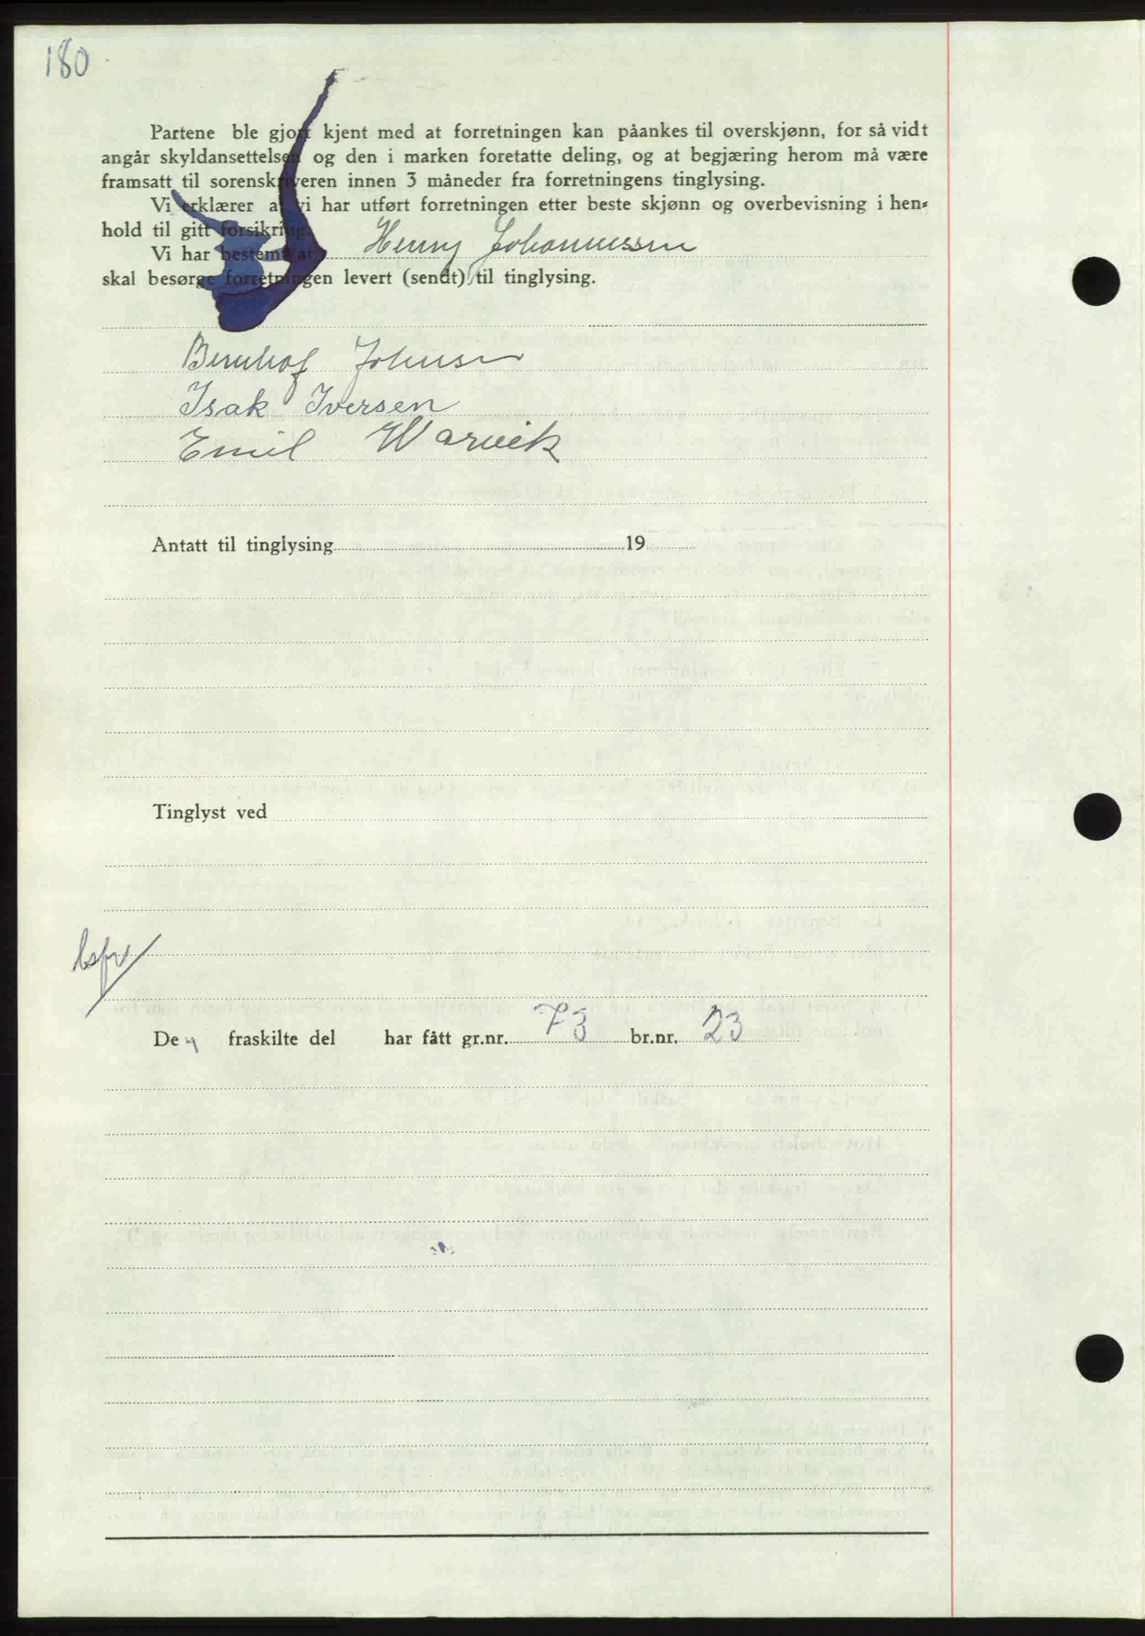 180
Partene ble gjort kjent med at forretningen kan påankes til overskjønn, for så vidt
angår skyldansettelsen og den i marken foretatte deling, og at begjæring herom må være
framsatt til sorenskriveren innen 3 måneder fra forretningens tinglysing.
Vi erklærer at vi har utført forretningen etter beste skjønn og overbevisning i hen-
hold til gitt forsikring.
Vi har bestemt at Henny Johannessen
skal besørge forretningen levert (sendt) til tinglysing.
Bernhof Johnsen
Isak Iversen
Emil Warvik
Antatt til tinglysing 19
Tinglyst ved
De n fraskilte del har fått gr.nr. 73 br.nr. 23